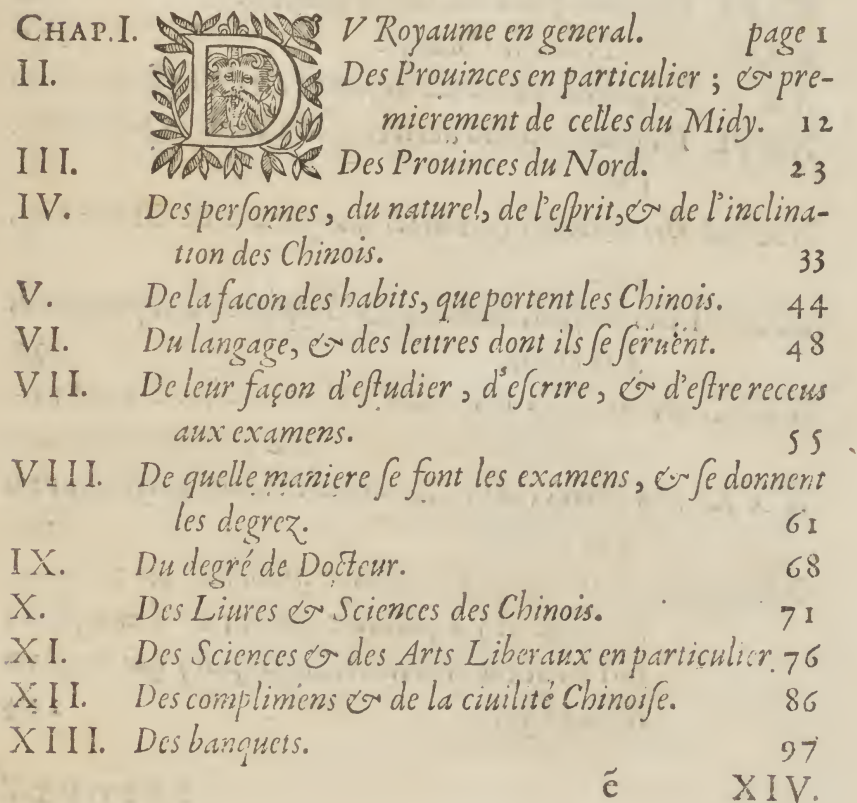 CHAP. I. DV Royaume en general. page 1
II. Des Prouinces en particulier ; & pre-
mierement de celles du Midy. 12
III. Des Prouinces du Nord. 23
IV. Des perſonnes, du naturel, de l'eſprit, & de l'inclina-
tion des Chinois. 33
V. De la facon des habits, que portent les Chinois. 44
VI. Du langage, & des lettres dont ils ſe ſeruent. 48
VII. De leur façon d'eſtudier, d'eſcrire, & d'eſtre receus
aux examens. 55
VIII. De quelle maniere ſe font les examens, & ſe donnent
les degrez. 61
IX. Du degré de Docteur. 68
X. Des Liures & Sciences des Chinois. 71
XI. Des Sciences & des Arts Liberaux en particulier. 76
XII. Des complimens & de la ciuilité Chinoiſe. 86
XIII. Des banquets. 97
ẽ XIV.